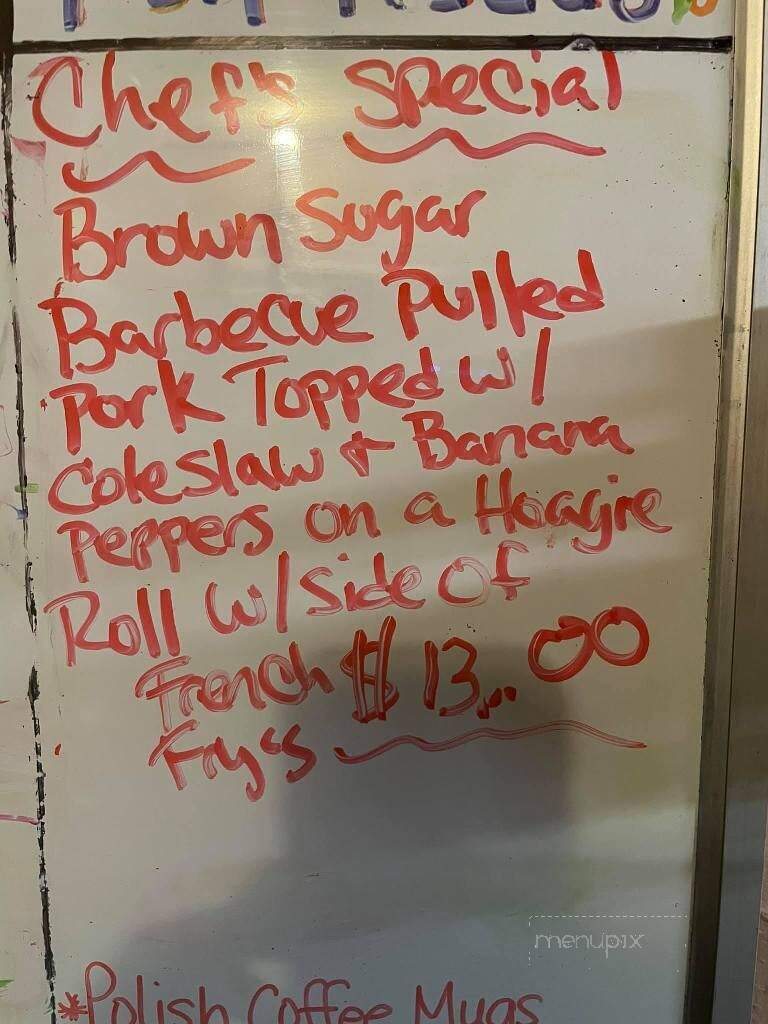 Chef's Special
Brown Sugar
Barbecue Pulled
Pork Topped w/
Coleslaw + Banana
Peppers on a Hoagie
Roll w/ side of
French $13.00
Frys
menupix
*Polish Coffee Mugs